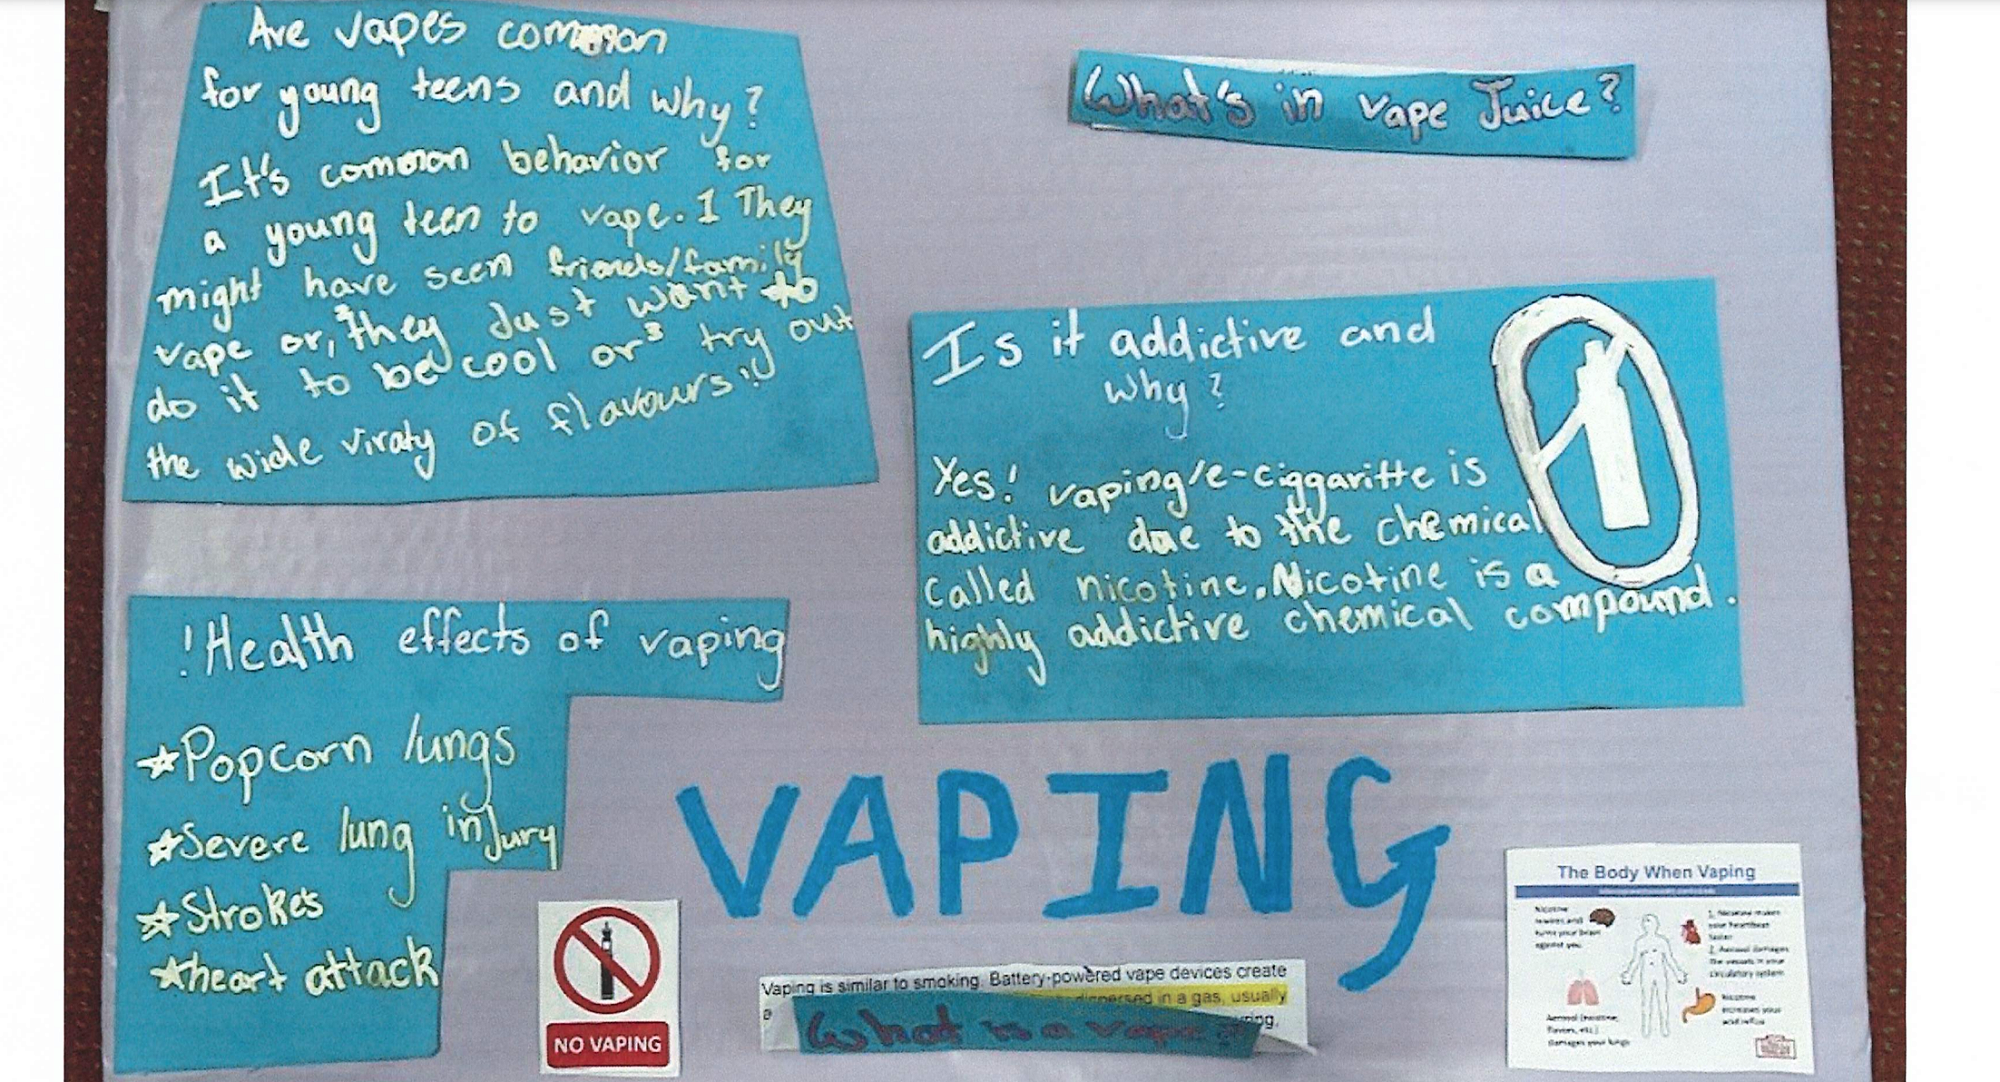 Are vapes common
for young teens and why?
It's common behavior for
a young teen to vape. 1 They
might have seen friends/family
vape or, ²they Just want to
do it to be cool or ³ try out
the wide viraty of flavours!!
What's in vape Juice?
Is it addictive and
why?
Yes! vaping/e-ciggaritte is
addictive due to the chemical
called nicotine. Nicotine is a
highly addictive chemical compound.
! Health effects of vaping
Popcorn lungs
Severe lung inJury
Strokes
heart attack
VAPING
NO VAPING
Vaping is similar to smoking. Battery-powered vape devices create
dispersed in a gas, usually
What is a vape?
The Body When Vaping
Nicotine
rewires and
turns your brain
against you
1. Nicotine makes
your heartbeat
faster
2. Aerosol damages
the vessels in your
circulatory system
Aerosol (nicotine,
flavors, etc.)
damages your lungs
Nicotine
increases your
acid reflux